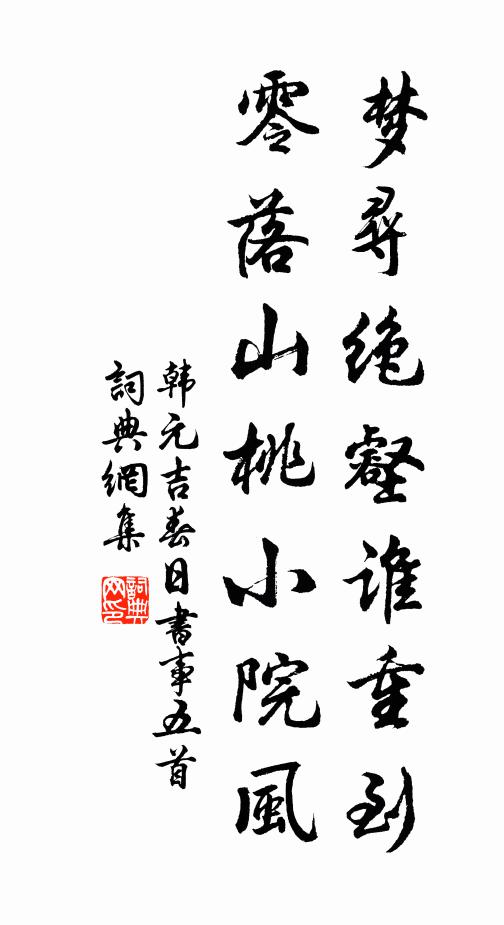 梦尋绝壑谁重到
零落山桃小院風
韩元吉春日書事五首
詞典網集
詞典
网印